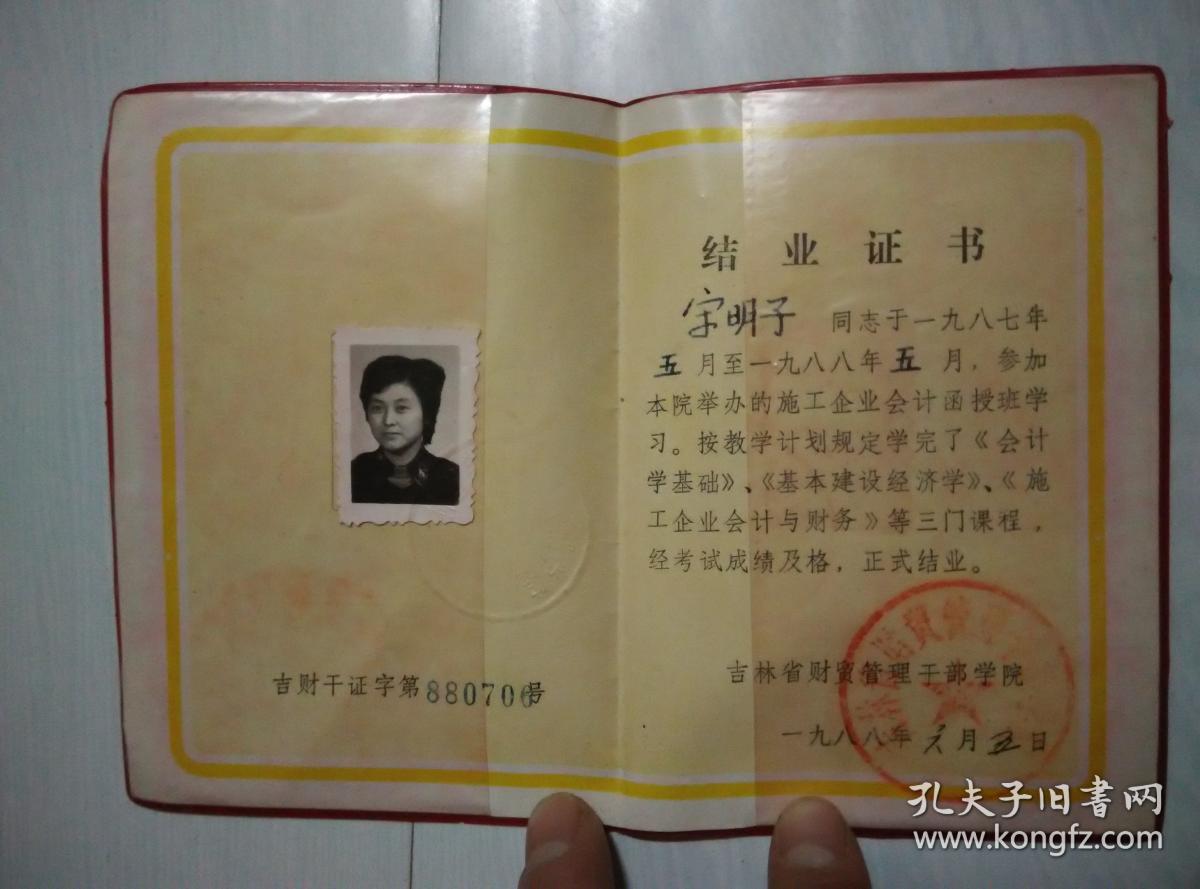 结业证书
宋明子 同志于一九八七年
五月至一九八八年五月，参加
本院举办的施工企业会计函授班学
习。按教学计划规定学完了《会计
学基础》、《基本建设经济学》、《施
工企业会计与财务》等三门课程，
经考试成绩及格，正式结业。
吉林省财贸管理干部学院
一九八八年六月五日
吉财干证字第880706号
孔夫子旧書网
www.kongfz.com